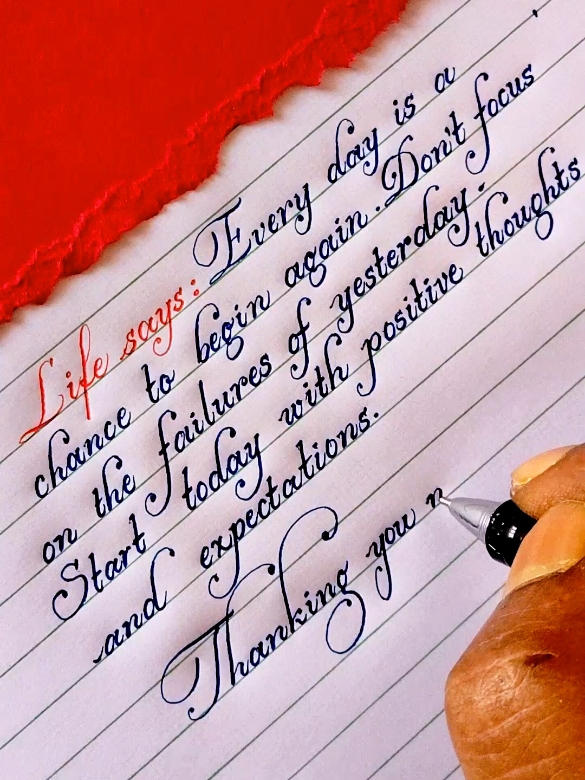 Life says: Every day is a
chance to begin again. Don't focus
on the failures of yesterday.
Start today with positive thoughts
and expectations.
Thanking you n